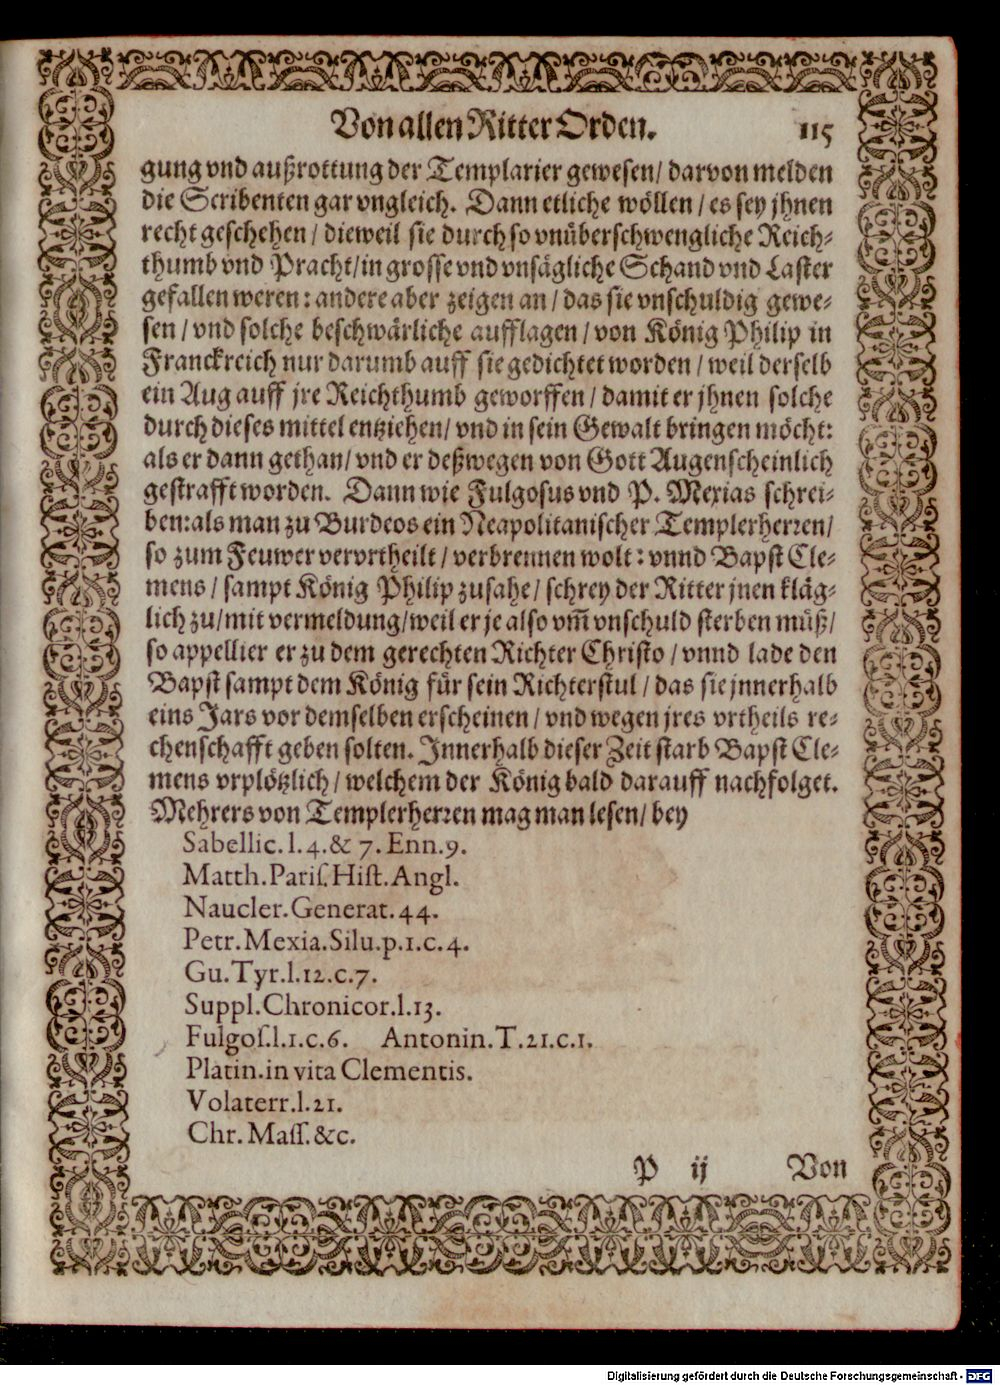 Von allen Ritter Orden. 115
gung vnd außrottung der Templarier gewesen / darvon melden
die Scribenten gar vngleich. Dann etliche wöllen / es sey jhnen
recht geschehen / dieweil sie durch so vnüberschwengliche Reich-
thumb vnd Pracht / in grosse vnd vnsägliche Schand vnd Laster
gefallen weren : andere aber zeigen an / das sie vnschuldig gewe-
sen / vnd solche beschwärliche aufflagen / von König Philip in
Franckreich nur darumb auff sie gedichtet worden / weil derselb
ein Aug auff jre Reichthumb geworffen / damit er jhnen solche
durch dieses mittel entziehen / vnd in sein Gewalt bringen möcht:
als er dann gethan / vnd er deßwegen von Gott Augenscheinlich
gestrafft worden. Dann wie Fulgosus vnd P. Mexias schrei-
ben: als man zu Burdeos ein Neapolitanischer Templerherren /
so zum Feuwer vervrtheilt / verbrennen wolt : vnnd Bapst Cle-
mens / sampt König Philip zusahe / schrey der Ritter jnen kläg-
lich zu / mit vermeldung / weil er je also vm̃ vnschuld sterben müß /
so appellier er zu dem gerechten Richter Christo / vnnd lade den
Bapst sampt dem König für sein Richterstul / das sie jnnerhalb
eins Jars vor demselben erscheinen / vnd wegen jres vrtheils re-
chenschafft geben solten. Innerhalb dieser Zeit starb Bapst Cle-
mens vrplötzlich / welchem der König bald darauff nachfolget.
Mehrers von Templerherren mag man lesen / bey
Sabellic. l. 4. & 7. Enn. 9.
Matth. Paris. Hist. Angl.
Naucler. Generat. 44.
Petr. Mexia. Silu. p. 1. c. 4.
Gu. Tyr. l. 12. c. 7.
Suppl. Chronicor. l. 13.
Fulgos. l. 1. c. 6. Antonin. T. 21. c. 1.
Platin. in vita Clementis.
Volaterr. l. 21.
Chr. Mass. &c.
P ij Von
Digitalisierung gefördert durch die Deutsche Forschungsgemeinschaft - DFG